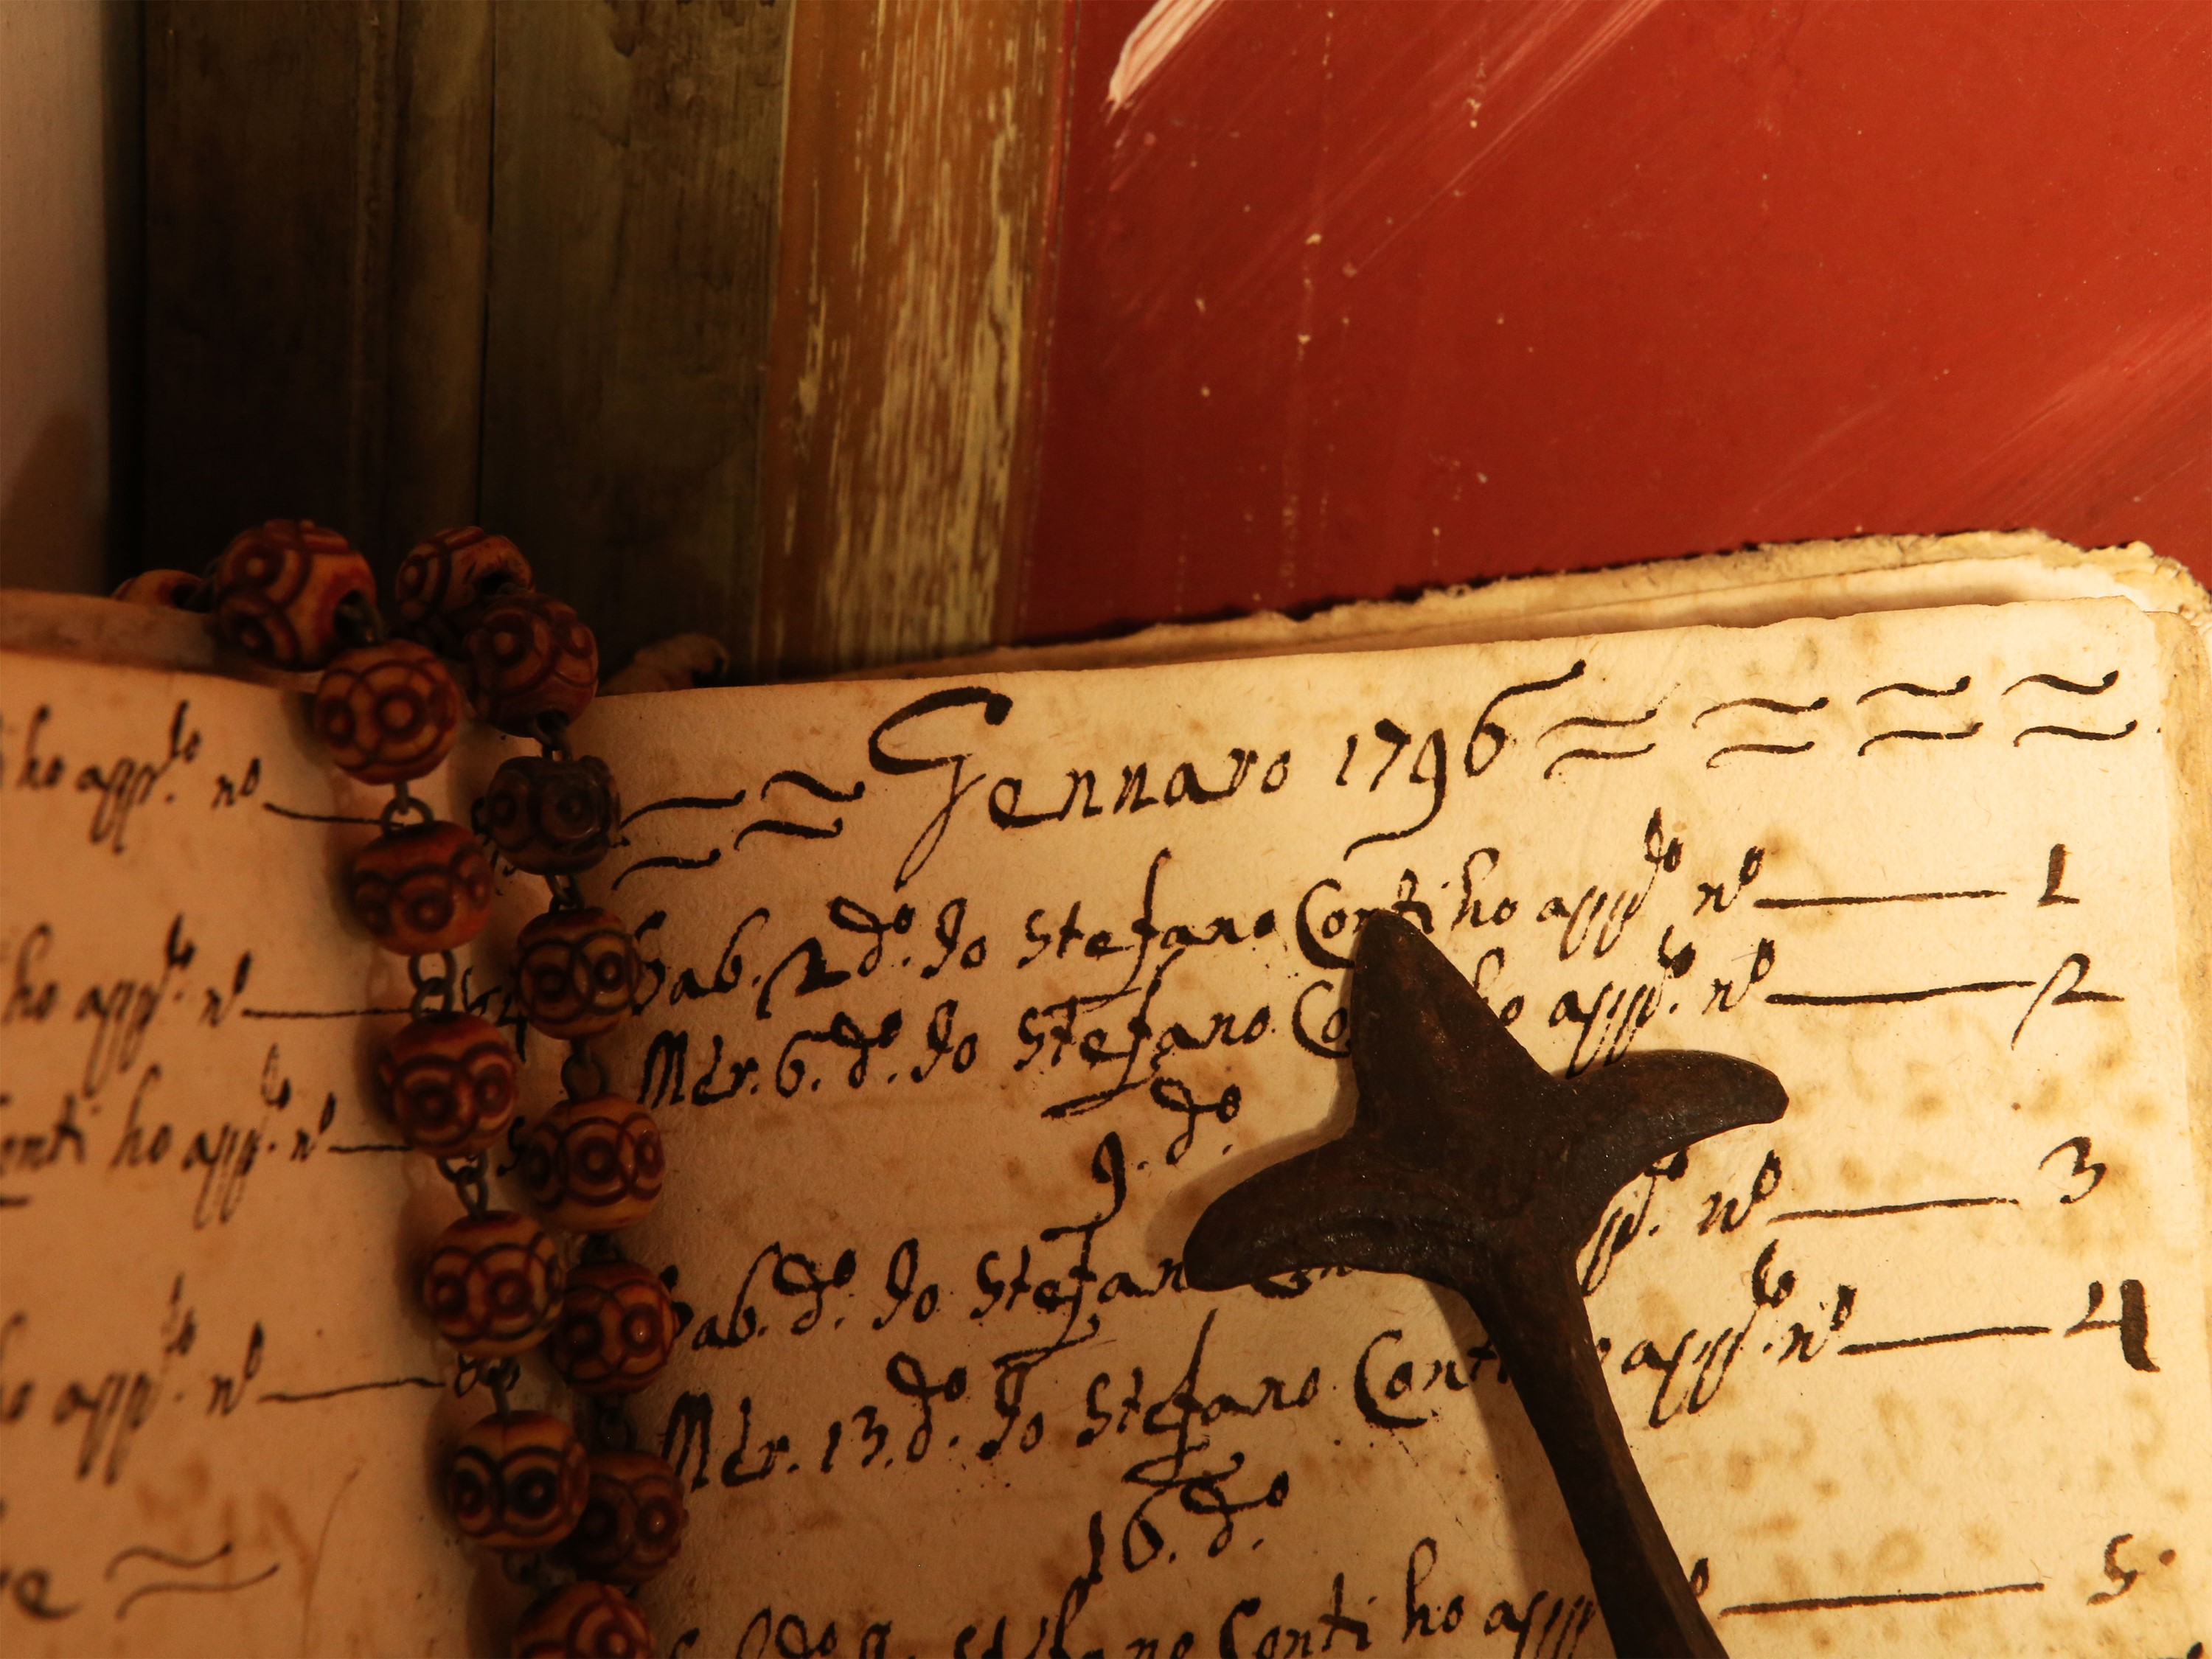 ho app.to no
ho app.to no
Conti ho app.to no
ho app.to no
Gennaro 1796
Sab. 2 do. Io Stefano Conti ho app.to no 1
Mer. 6. do. Io Stefano Co ho app.to no 2
9. do
Sab. do. Io Stefan no 3
Mer. 13. do. Io Stefano Conti app.to no 4
16. do.
Stefano Conti ho app 5.